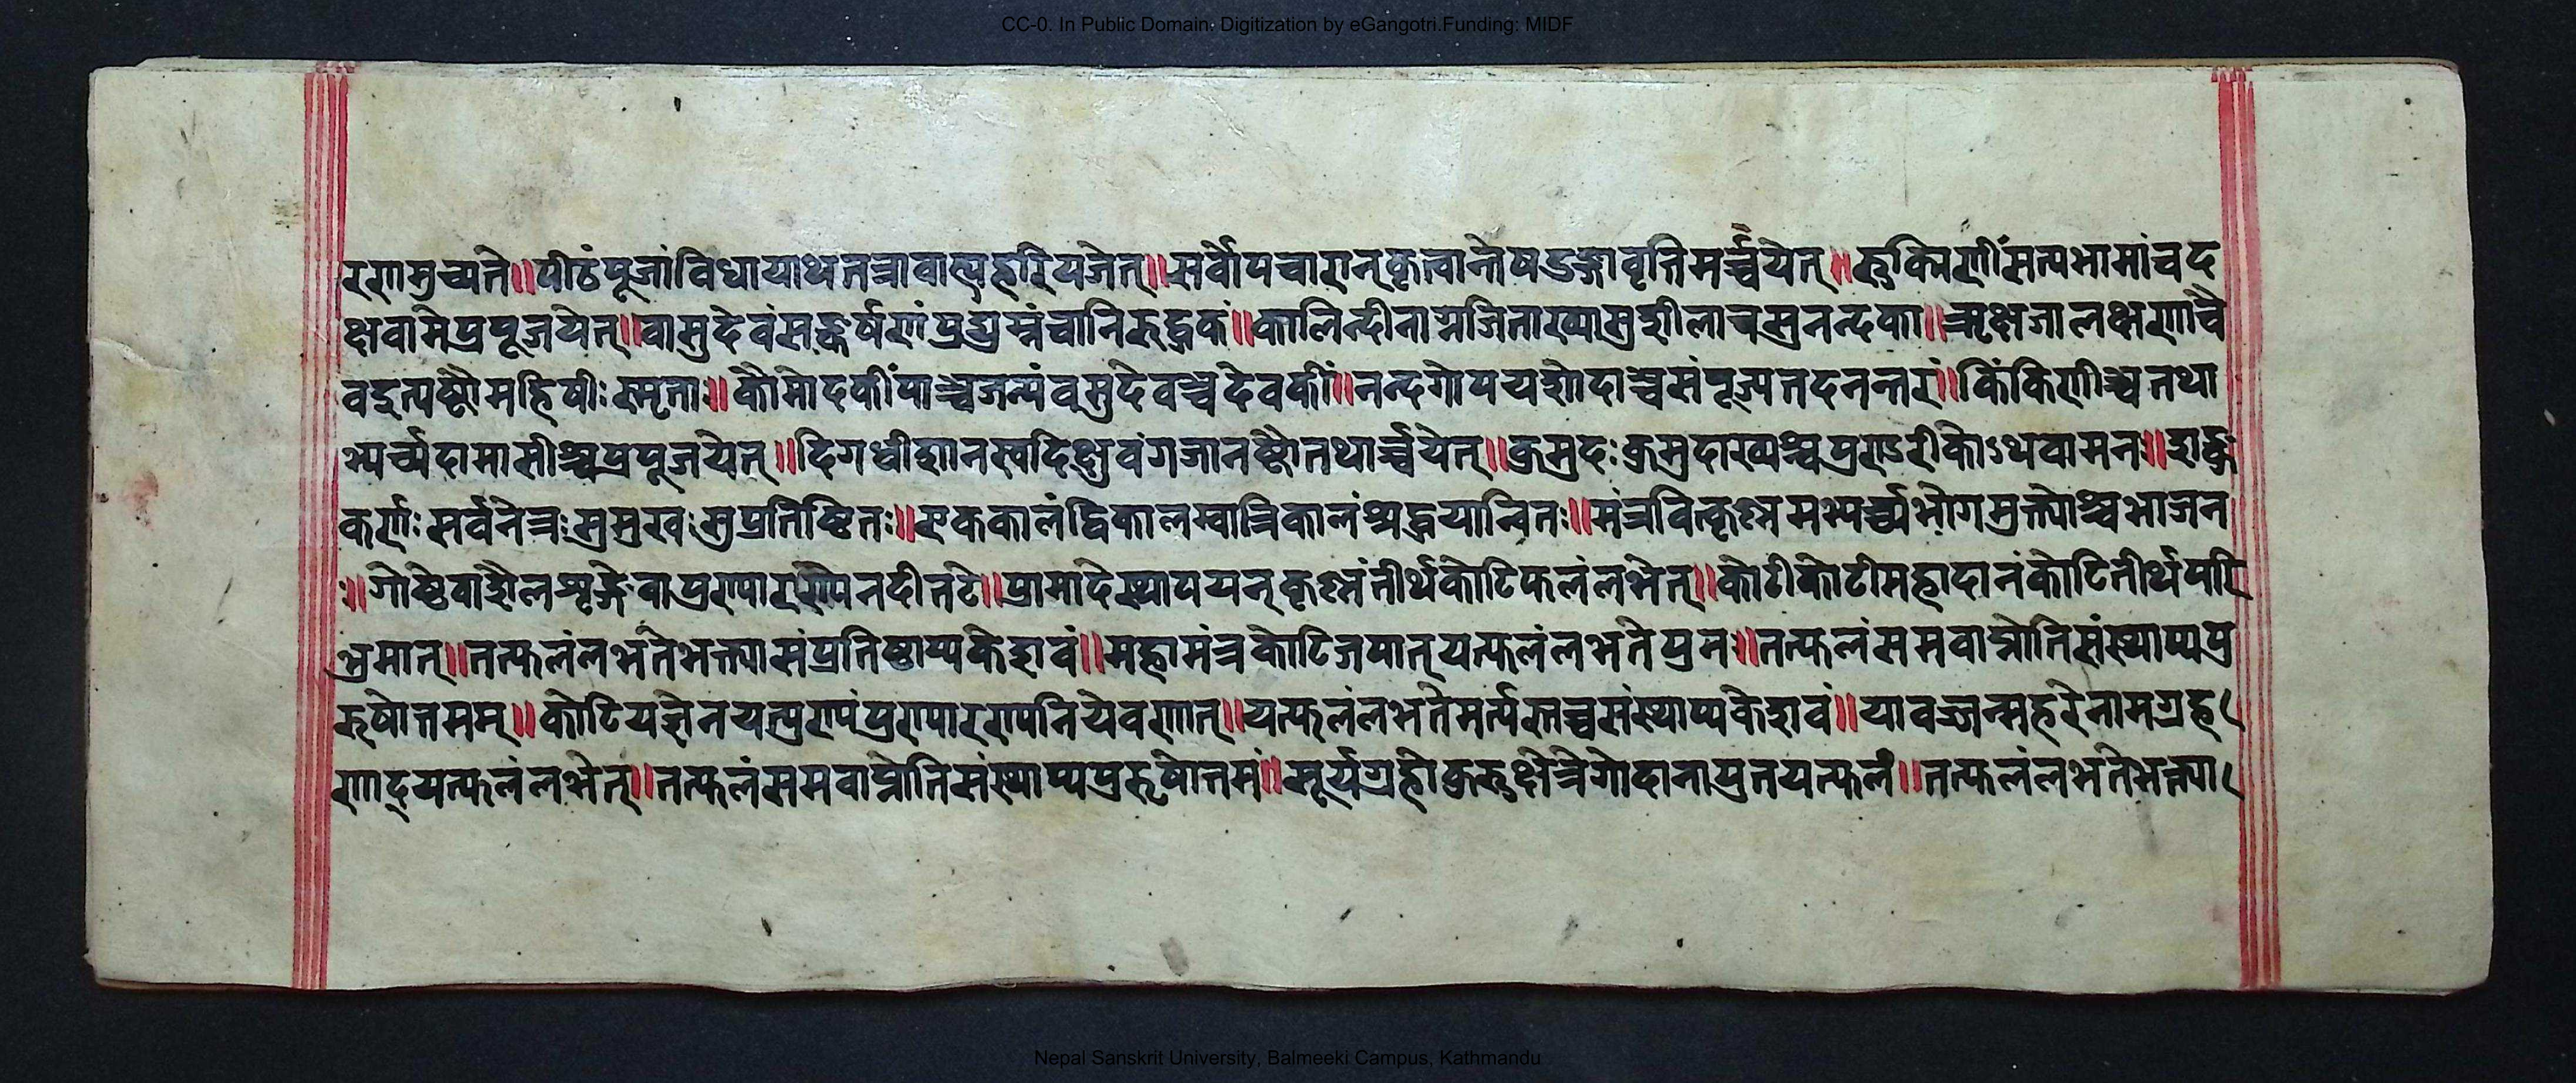 CC-0. In Public Domain. Digitization by eGangotri.Funding: MIDF
रणमुच्यते॥पीठंपूजांविधायाथतत्रावाह्यहरिंयजेत्॥सर्वोपचारान्कृत्वान्तेषडङ्गावृत्तिमर्च्चयेत्॥रुक्मिणींसत्यभामांचद
क्षवामेप्रपूजयेत्॥वासुदेवंसङ्कर्षणंप्रद्युम्नंचानिरुद्धकं॥कालिन्दीनाग्नजिताख्यासुशीलाचसुनन्दका॥ऋक्षजालक्ष्मणाचै
वइत्यष्टौमहिषीःस्मृताः॥कौमोदकींपाञ्चजन्यंवसुदेवञ्चदेवकीं॥नन्दगोपयशोदाञ्चसंपूज्यतदनन्तरं॥किंकिणीञ्चतथा
भ्यर्च्यदामासीञ्चप्रपूजयेत्॥दिगधीशानस्वदिक्ष्वेवंगजानष्टौतथार्च्चयेत्॥कुमुदःकुमुदाख्यश्चपुण्डरीकोऽथवामनः॥शङ्कु
कर्णःसर्वनेत्रःसुमुखःसुप्रतिष्ठितः॥एककालंद्विकालम्वात्रिकालंश्रद्धयान्वितः॥मंत्रवित्कृष्णमभ्यर्च्च्यभोगमुक्त्योश्चभाजन
ः॥गोष्ठेवाशैलशृङ्गेवापुण्यारण्येनदीतटे॥प्रासादेस्थापयन्कृष्णंतीर्थकोटिफलंलभेत्॥कोटीकोटीमहादानंकोटितीर्थपरि
भ्रमात्॥तत्फलंलभतेभक्त्यासंप्रतिष्ठाप्यकेशवं॥महामंत्रकोटिजपात्यत्फलंलभतेपुनः॥तत्फलंसमवाप्नोतिसंस्थाप्यपु
रुषोत्तमम्॥कोटियज्ञेनयत्पुण्यंपुण्यारण्यनिषेवणात्॥यत्फलंलभतेमर्त्यस्तच्चसंस्थाप्यकेशवं॥यावज्जन्महरेनामग्रह
णाद्यत्फलंलभेत्॥तत्फलंसमवाप्नोतिसंस्थाप्यपुरुषोत्तमं॥सूर्यग्रहेकुरुक्षेत्रेगोदानायुतयत्फलं॥तत्फलंलभतेभक्त्या
Nepal Sanskrit University, Balmeeki Campus, Kathmandu